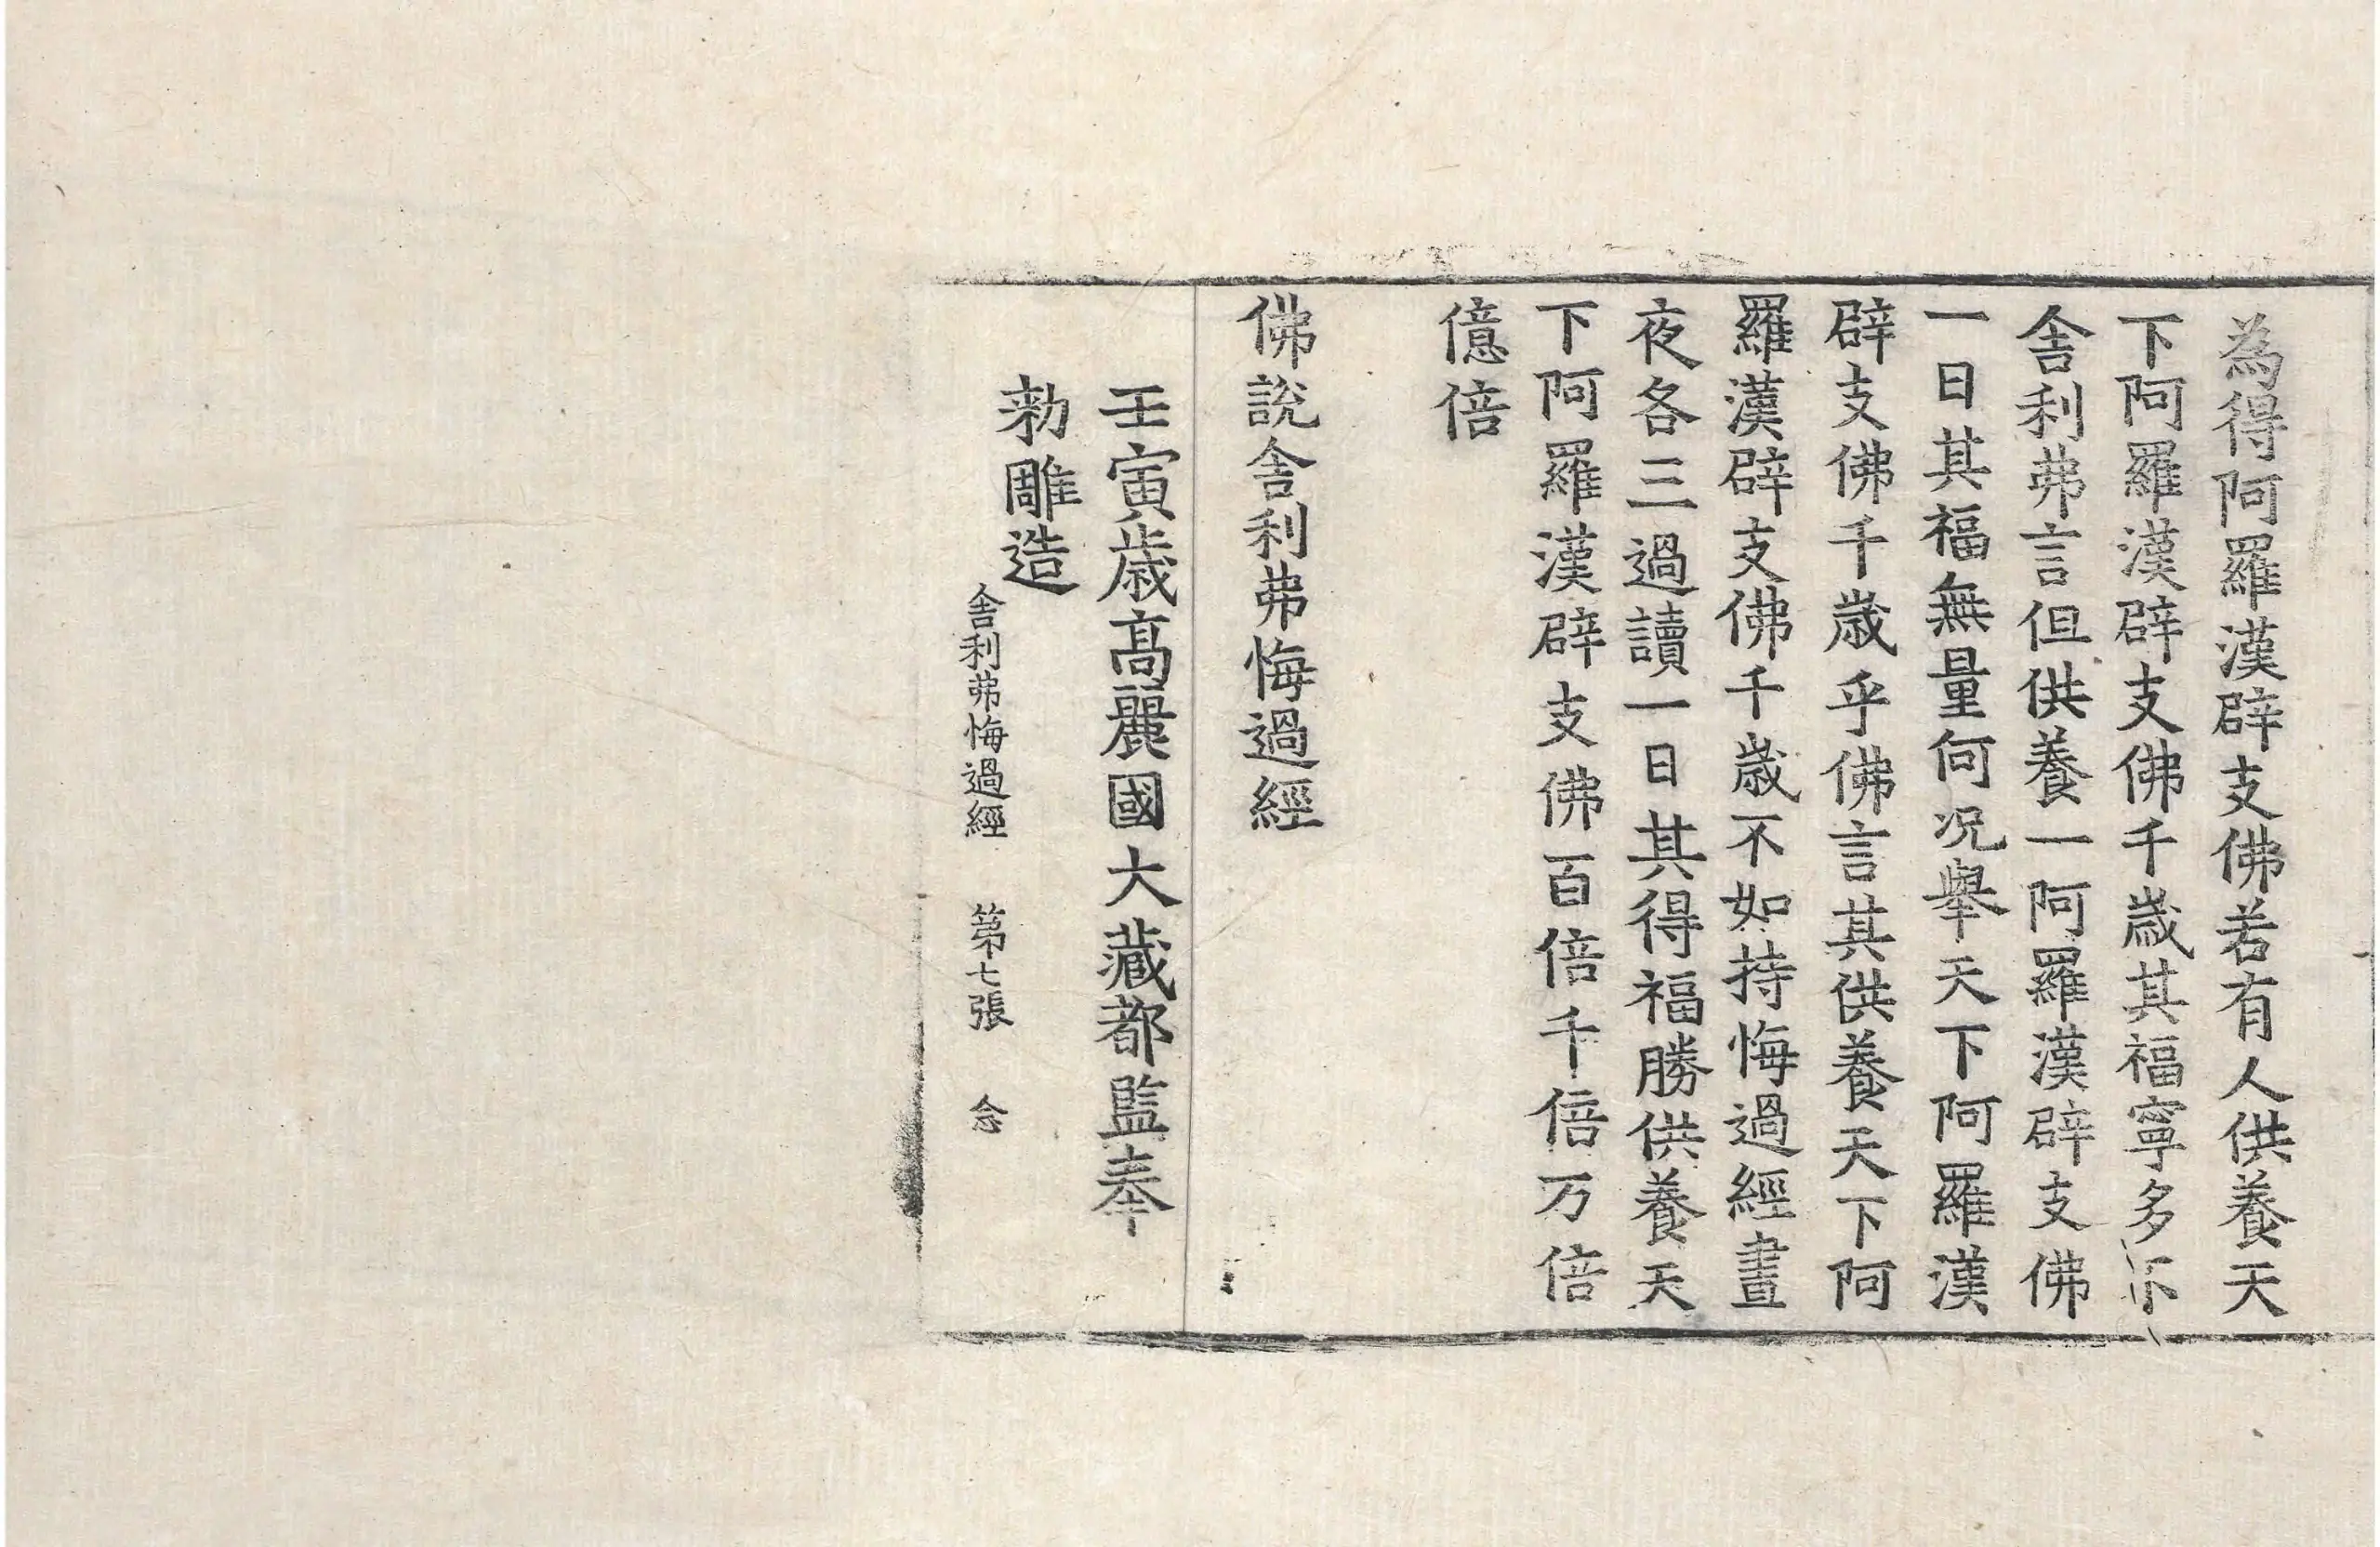 為得阿羅漢辟支佛若有人供養天
下阿羅漢辟支佛千歲其福寧多不
舍利弗言但供養一阿羅漢辟支佛
一日其福無量何况舉天下阿羅漢
辟支佛千歲乎佛言其供養天下阿
羅漢辟支佛千歲不如持悔過經晝
夜各三過讀一日其得福勝供養天
下阿羅漢辟支佛百倍千倍万倍
億倍
佛說舍利弗悔過經
壬寅歲高麗國大藏都監奉
勑雕造
舍利弗悔過經 第七張 念